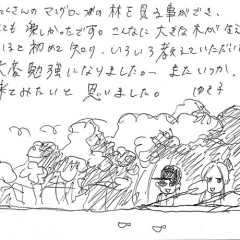 たくさんのマングローブの林を見る事ができ、
とても楽しかったです。こんなに大きな木が生え
いると初めて知り、いろいろ教えていただいて
大変勉強になりました。またいつか、
来てみたいと思いました。 ゆき子